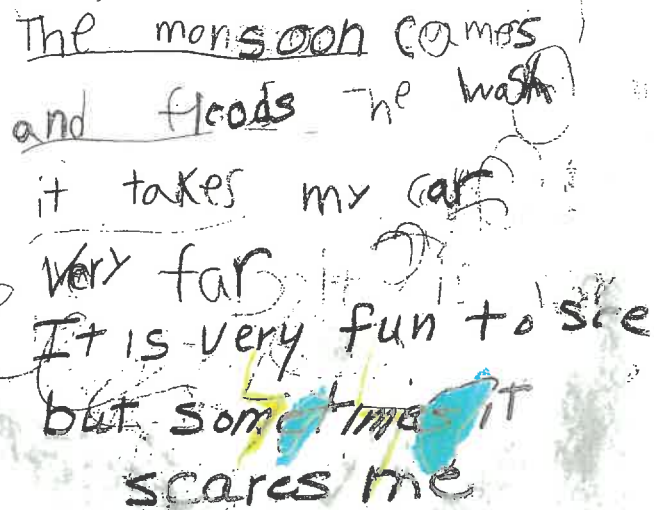 The monsoon comes
and floods the wash
it takes my car
very far
It is very fun to see
but sometimes it
scares me